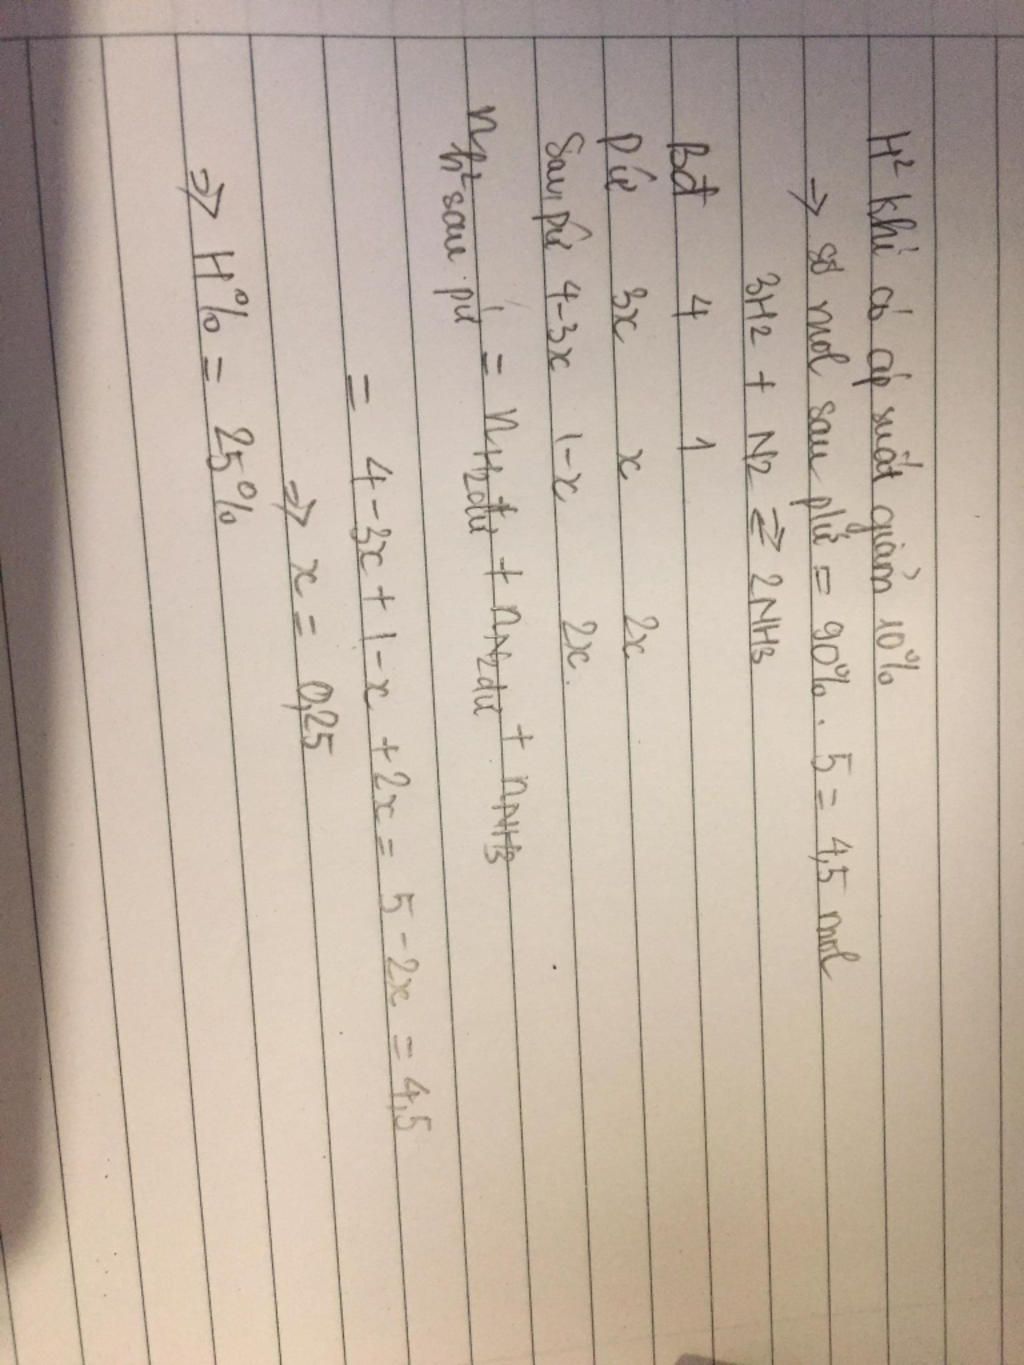 H² khí có áp suất giảm 10%
=> số mol sau phứ = 90%. 5 = 4,5 mol
3H2 + N2 ⇌ 2NH3
Bđ 4 1
Pứ 3x x 2x
Sau pứ 4-3x 1-x 2x.
n h² sau pư = nH2dư + nN2dư + nNH3
= 4-3x+1-x+2x = 5-2x = 4,5
=> x = 0,25
=> H% = 25%